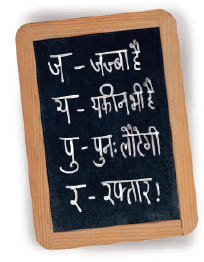 ज - जज्बा है
य - यकीन भी है
पु - पुनः लौटेगी
र - रफ्तार!